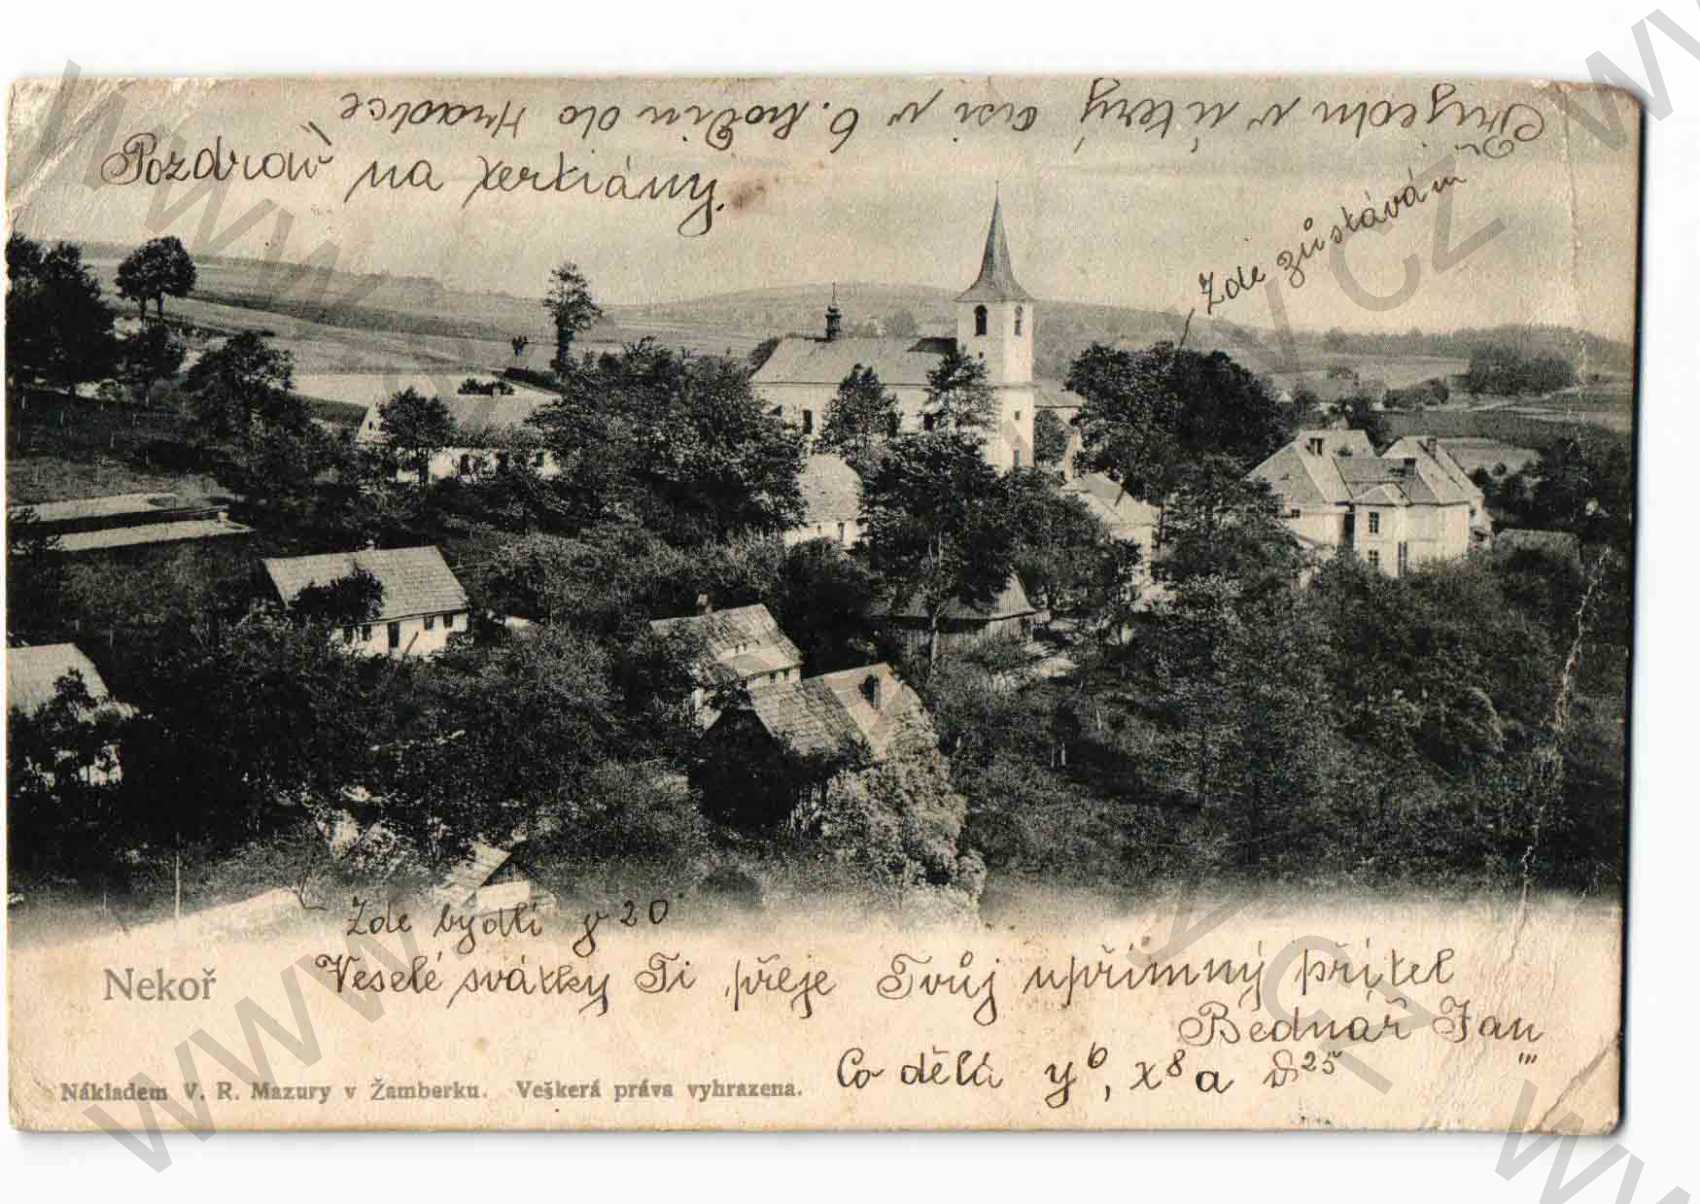 Přijedu v úterý asi v 6. hodin do Hradce
Pozdrav na xerxiány
Zde zůstávám
Zde bydlí y 20
Nekoř
Veselé svátky Ti přeje Tvůj upřímný přítel
Bednář Jan
Co dělá y⁶, x⁸ a 
Nákladem V. R. Mazury v Žamberku. Veškerá práva vyhrazena.